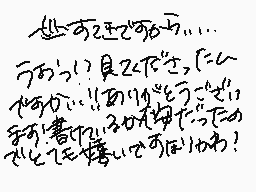 すてきですから、、、、
うおっ!?見てくださったん
ですか!!!ありがとうござい
ます!書けているか不安だったの
でとても嬉しいですほりゃわ!